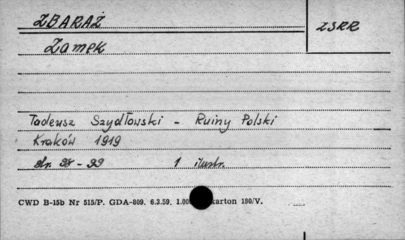 ZBARAŻ
ZSRR
Zamek
Tadeusz Szydłowski - Ruiny Polski
Kraków 1919
str. 98 - 99 1 ilustr.
CWD B-15b Nr 515/P. GDA-809. 6.3.59. 1.00 karton 150/V.